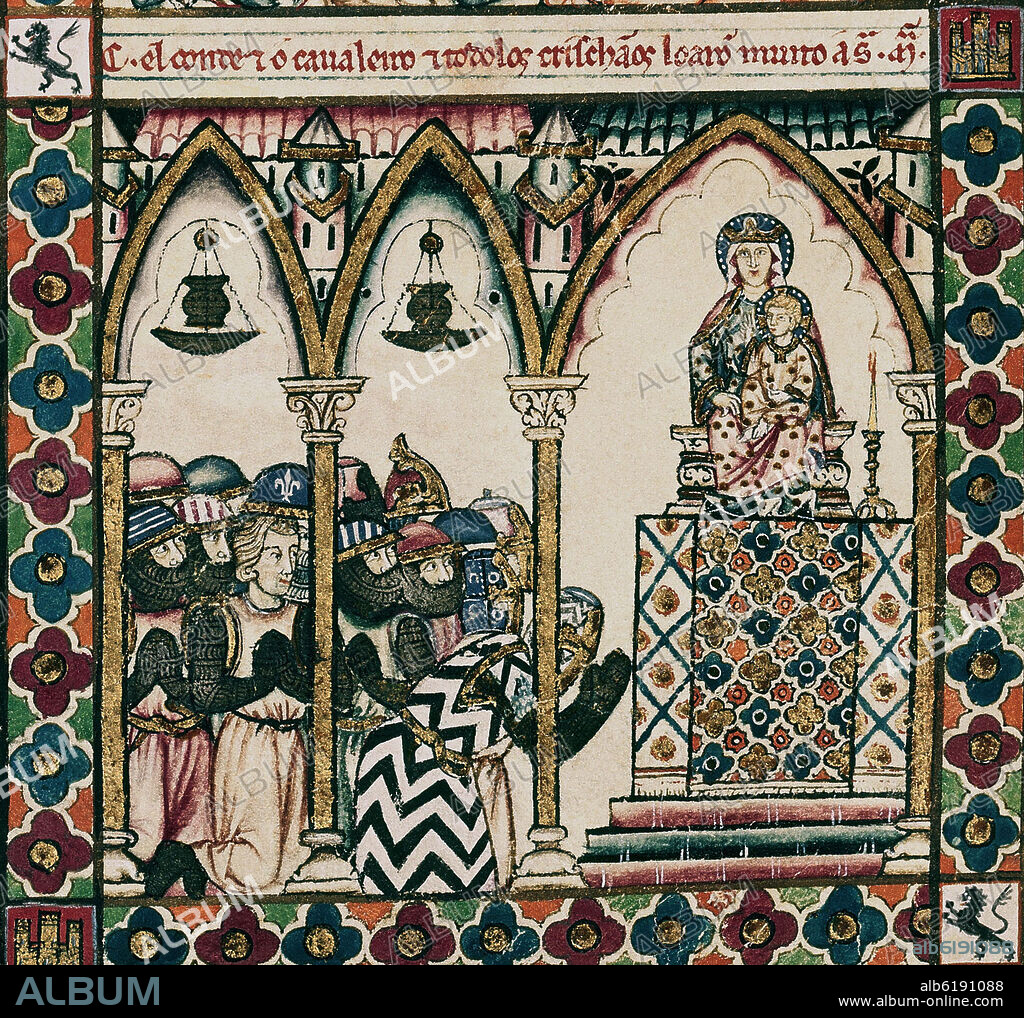 C. el conde ⁊ o caualeiro ⁊ todolos crischãos loarõ muito a S. M̃.
ALBUM
alb6191088
ALBUM
alb6191088
www.album-online.com